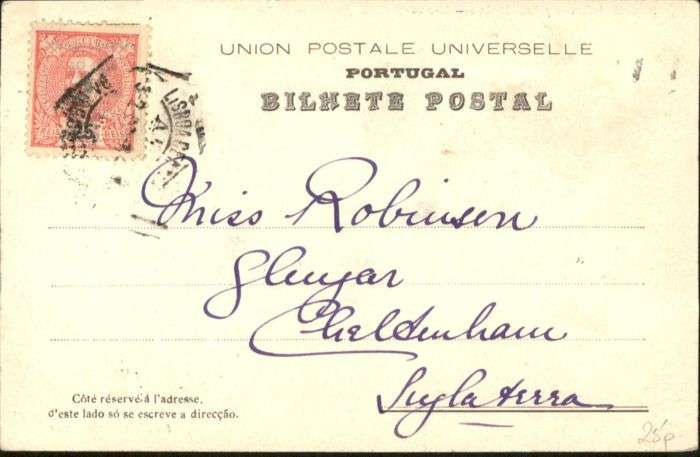 UNION POSTALE UNIVERSELLE
PORTUGAL
BILHETE POSTAL
LISBOA
25
REIS
Miss Robinson
Glengar
Cheltenham
Inglaterra
Côté réservé à l'adresse.
d'este lado só se escreve a direcção.
25p